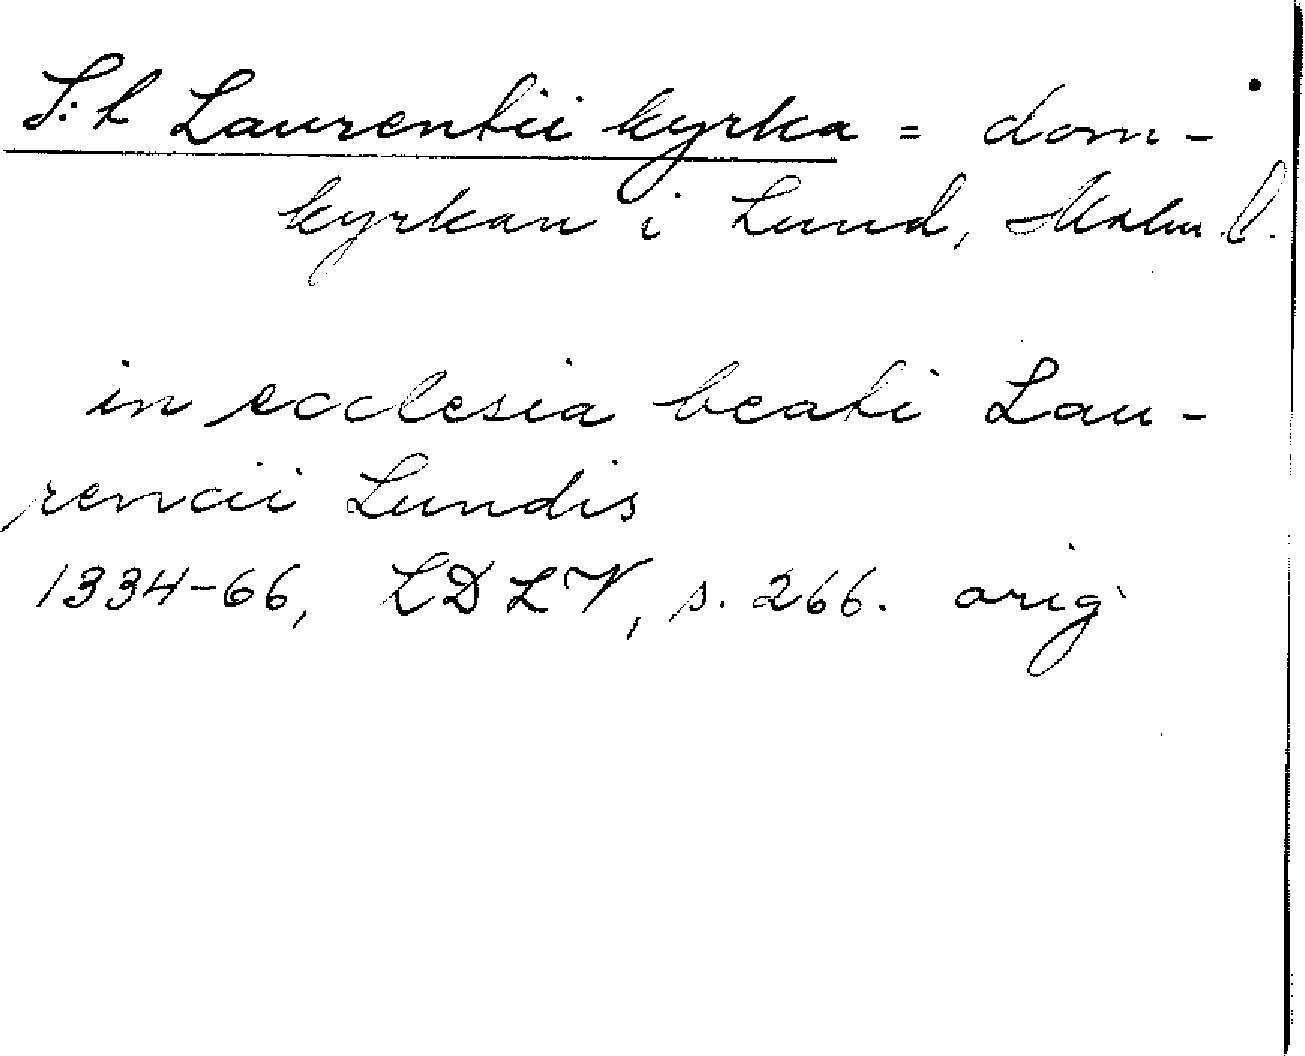 S:t Laurentii kyrka = dom-
kyrkan i Lund, Malm. l.
in ecclesia beati Lau-
rencii Lundis
1334-66, LDLV, s. 266. orig